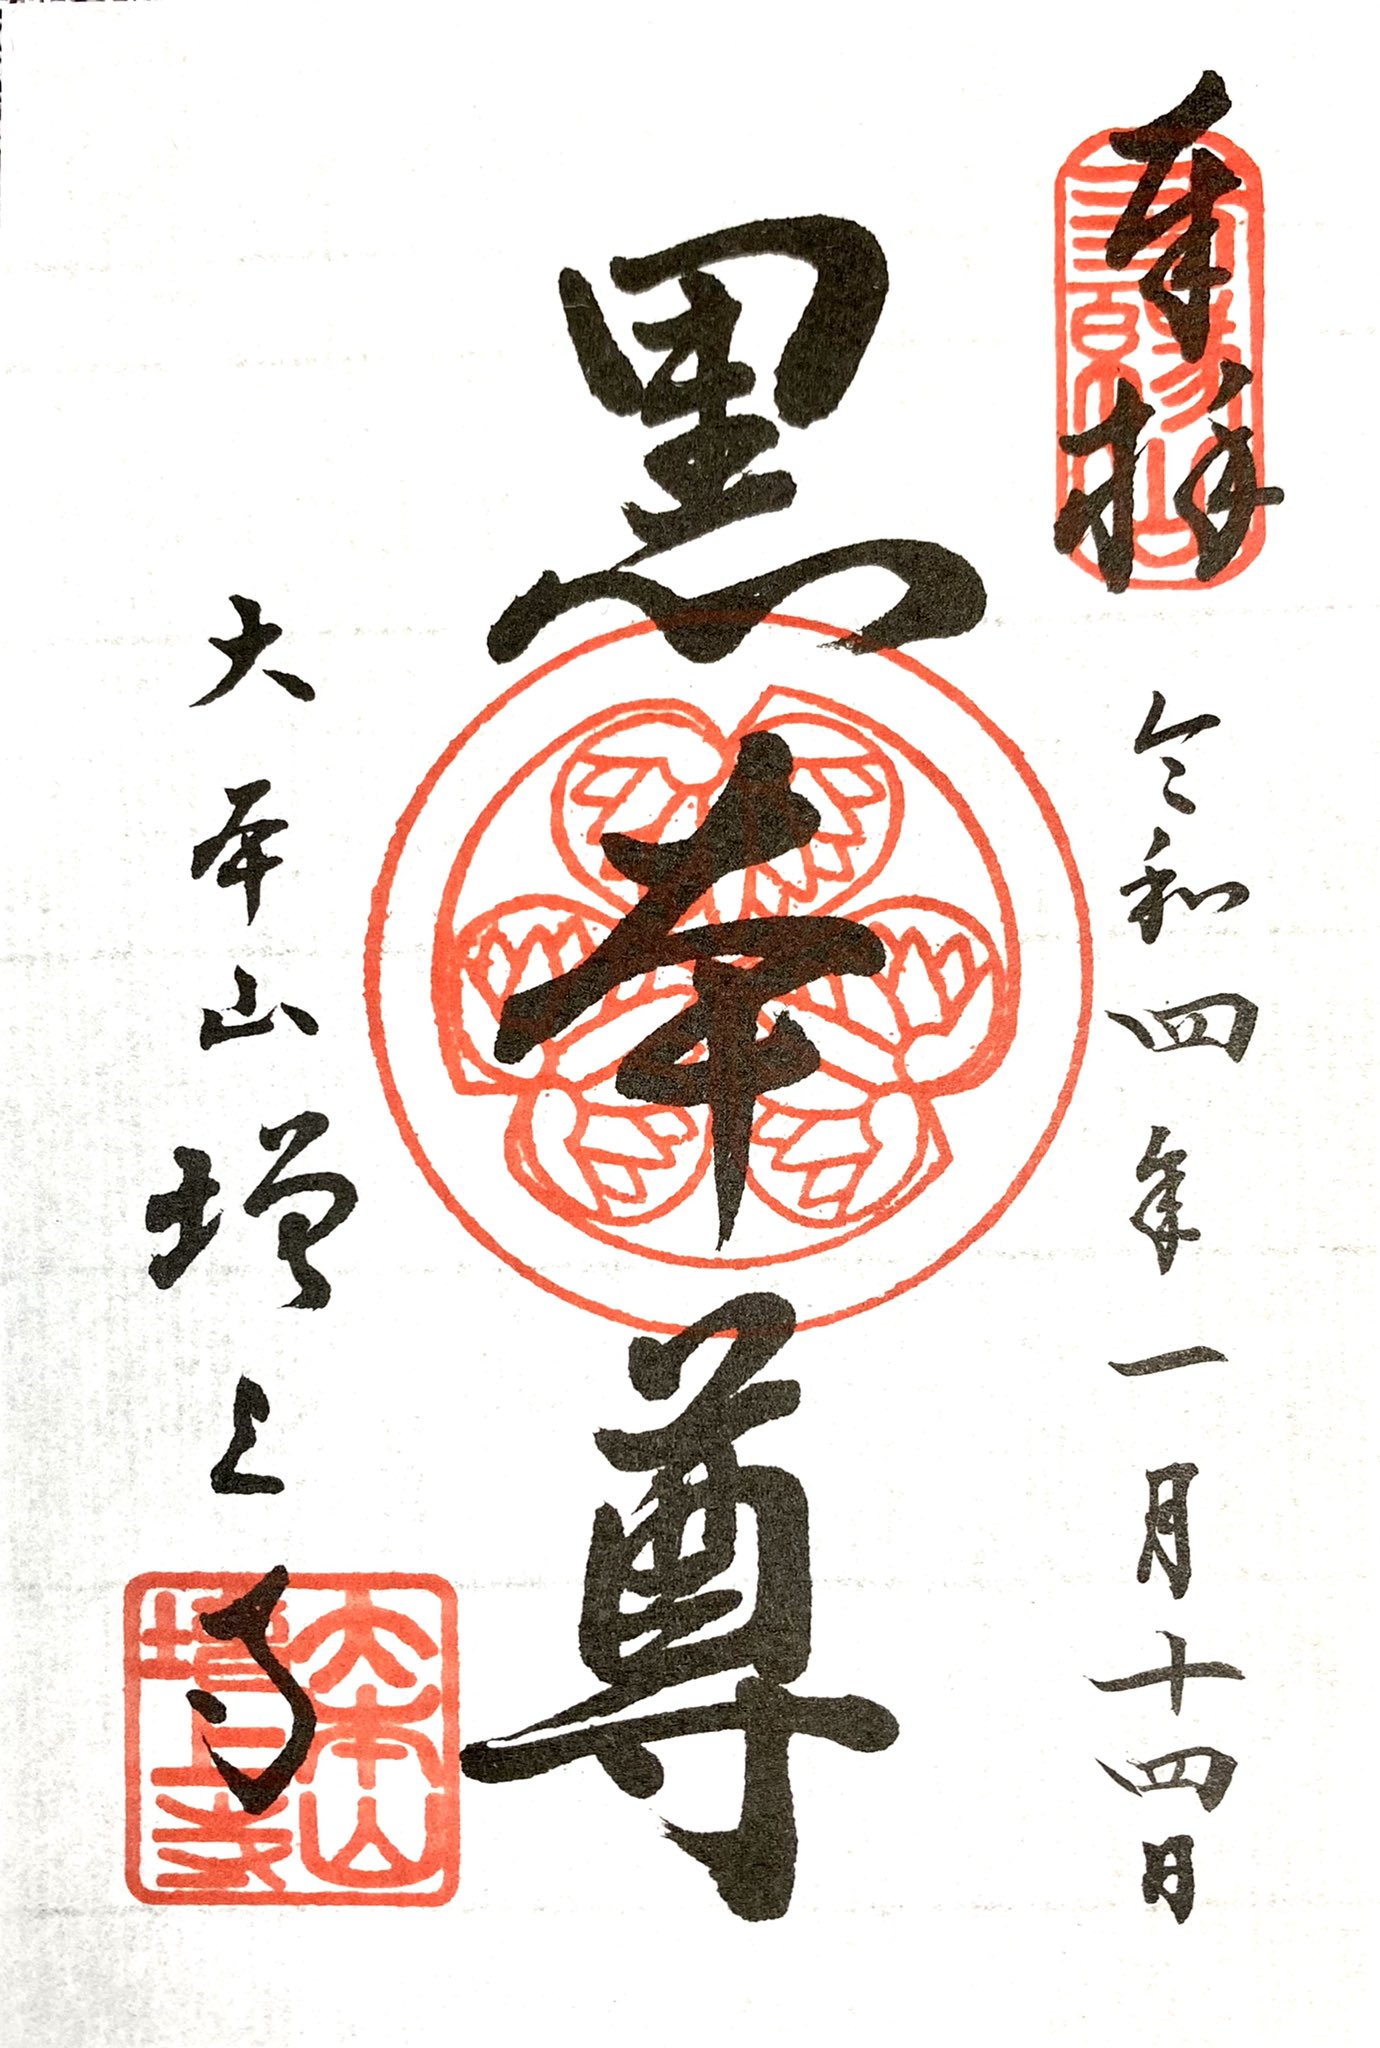 奉拝
三縁山
令和四年一月十四日
黒本尊
大本山増上寺
大本山
増上寺